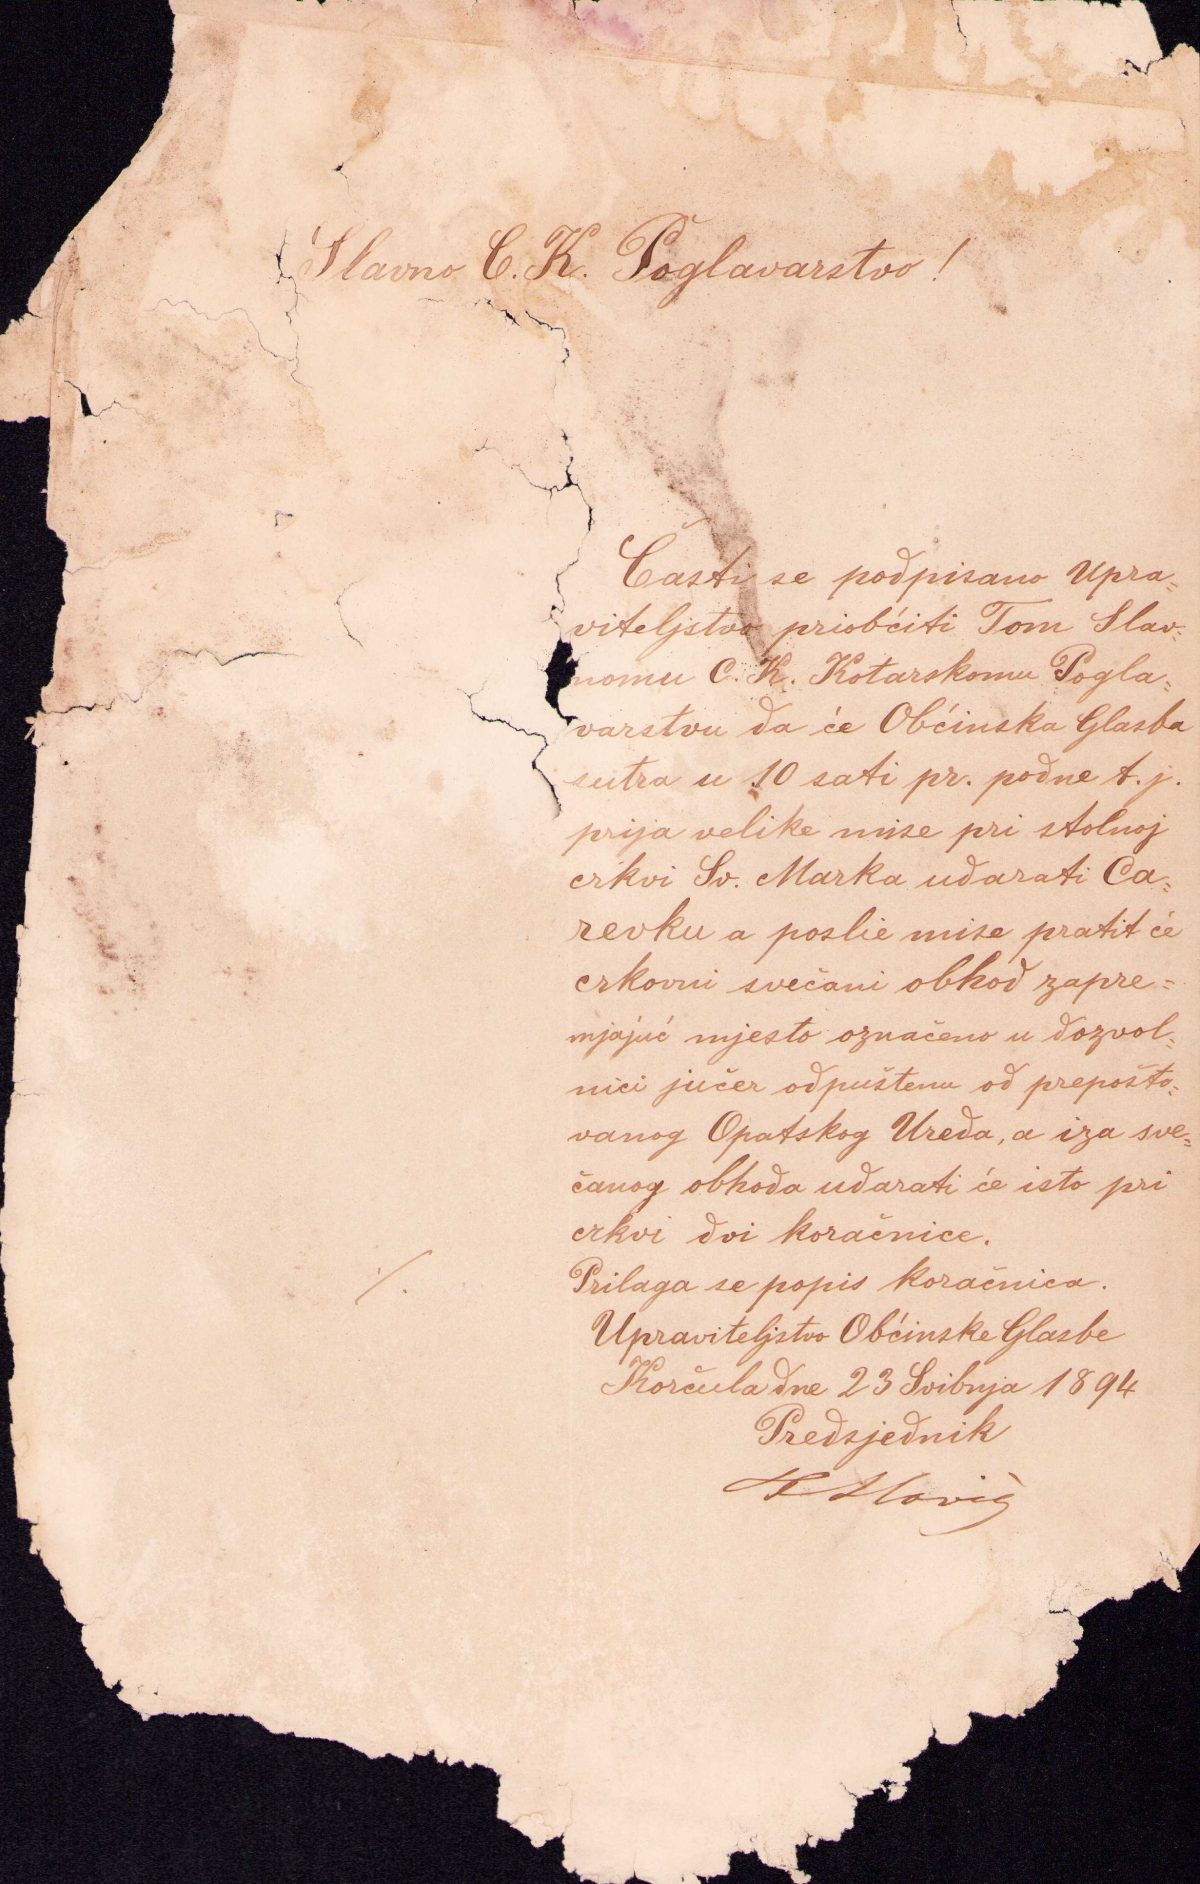 Slavno C. K. Poglavarstvo!
Časti se podpisano Upra=
viteljstvo priobćiti Tom Slav=
nomu C. K. Kotarskomu Pogla=
varstvu da će Obćinska Glasba
sutra u 10 sati pr. podne t. j.
prija velike mise pri stolnoj
crkvi Sv. Marka udarati Ca=
revku a poslie mise pratit će
crkovni svečani obhod zapre=
mjajuć mjesto označeno u dozvol=
nici jučer odpuštenu od prepošto=
vanog Opatskog Ureda, a iza sve=
čanog obhoda udarati će isto pri
crkvi dvi koračnice.
Prilaga se popis koračnica.
./.
Upraviteljstvo Obćinske Glasbe
Korčula dne 23 Svibnja 1894
Predsjednik